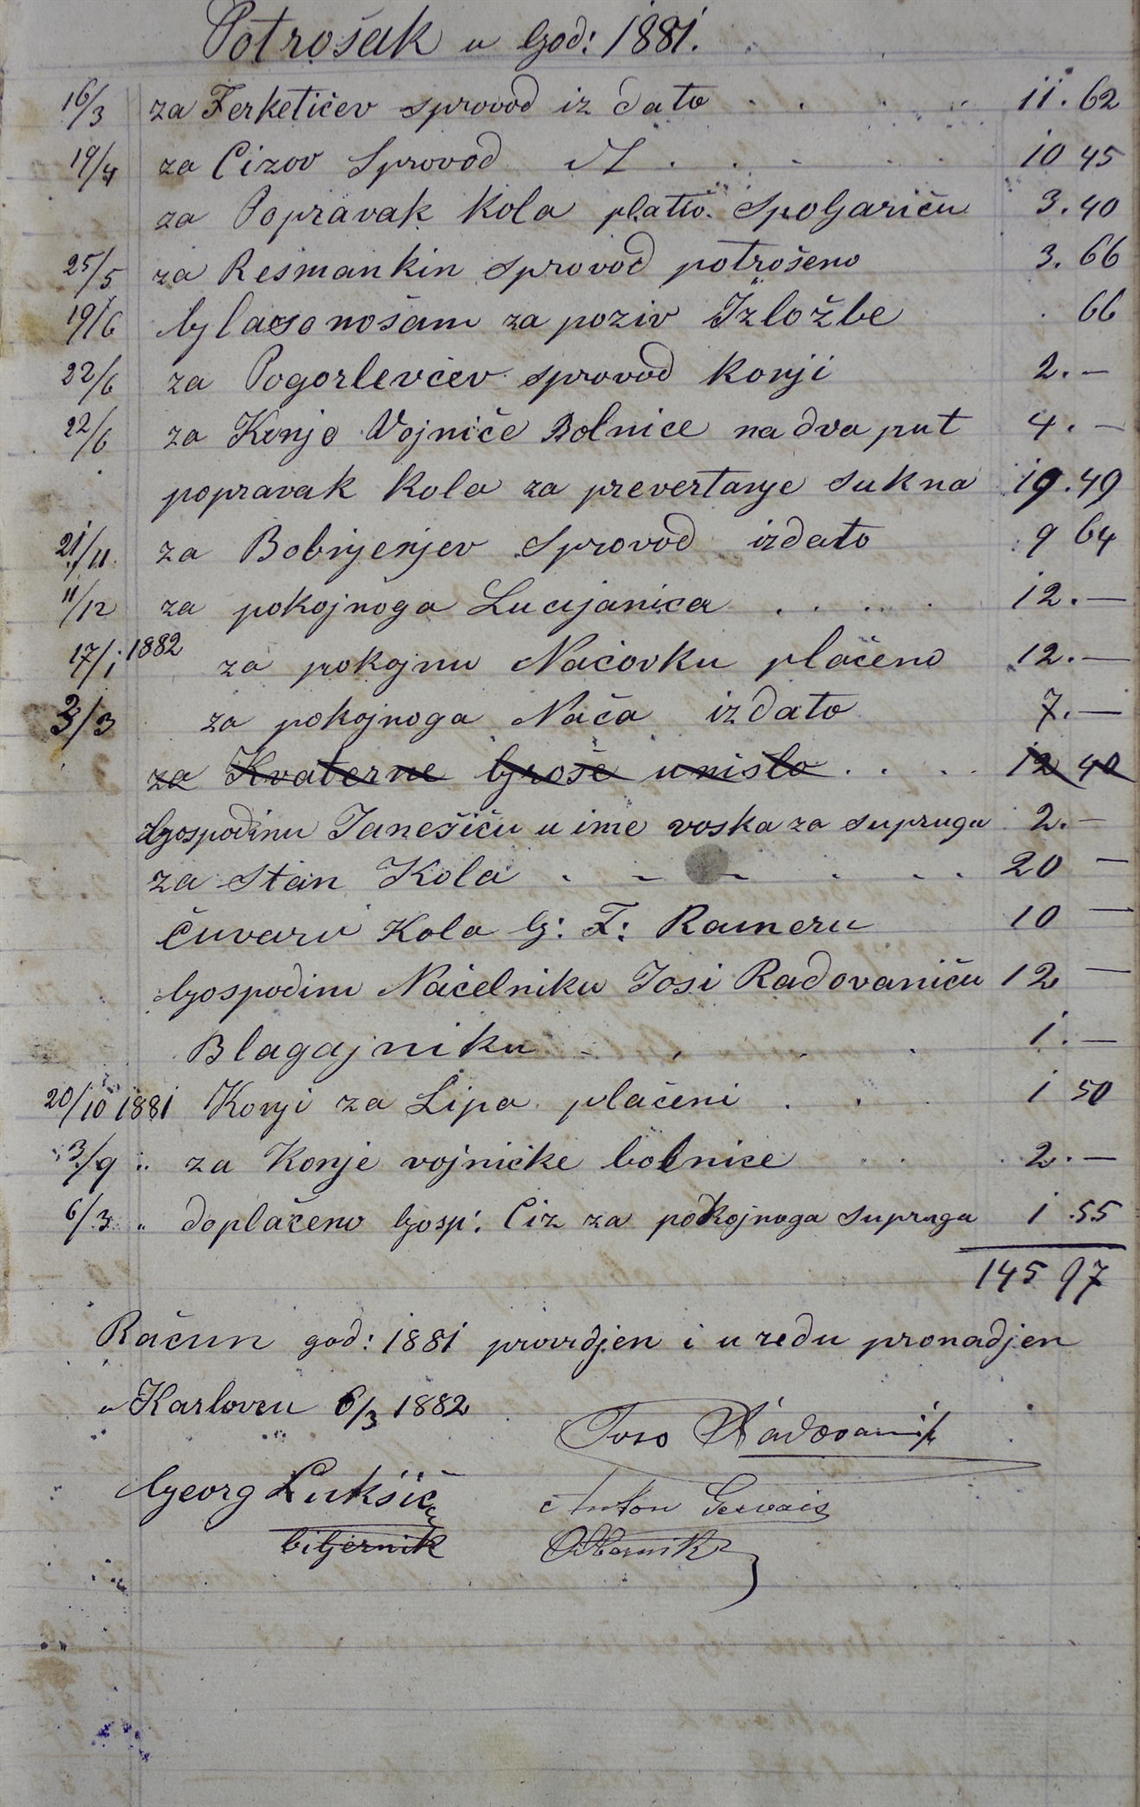 Potrošak u God: 1881.
16/3 za Ferketičev sprovod iz dato . . . . 11. 62
19/4 za Cizov Sprovod . . . . . 10 45
za Popravak Kola platio Spoljariču 3. 40
25/5 za Resmankin sprovod potrošeno 3. 66
19/6 Glasonošam za poziv Izložbe . 66
22/6 za Pogorlevčev sprovod konji 2. —
22/6 za Konje Vojniče Bolnice na dva put 4. —
popravak kola za prevertanje sukna 19. 49
21/11 za Bobnjenjev Sprovod izdato 9 64
11/12 za pokojnoga Lucijanića . . . . . 12. —
17/1 1882 za pokojnu Načovku plačeno 12. —
3/3 za pokojnoga Nača izdato 7. —
za Kvaterne Groše unislo . . . . 12 40
Gospodinu Janešiču u ime voska za supruga 2. —
za Stan Kola . . . . . . 20 —
čuvaru Kola G: F: Rameru 10 —
Gospodinu Načelniku Josi Radovaniču 12 —
Blagajniku . . . . 1. —
20/10 1881 Konji za Lipa plačeni . . . 1 50
3/9 " za Konje vojničke bolnice . . . 2. —
6/3 " doplačeno Gosp: Ciz za pokojnoga supruga 1 .55
145 97
Račun god: 1881 provrdjen i u redu pronadjen
u Karlovcu 6/3 1882
Joso Radovanić
Georg Lukšić
Anton Gervais
Odbornik